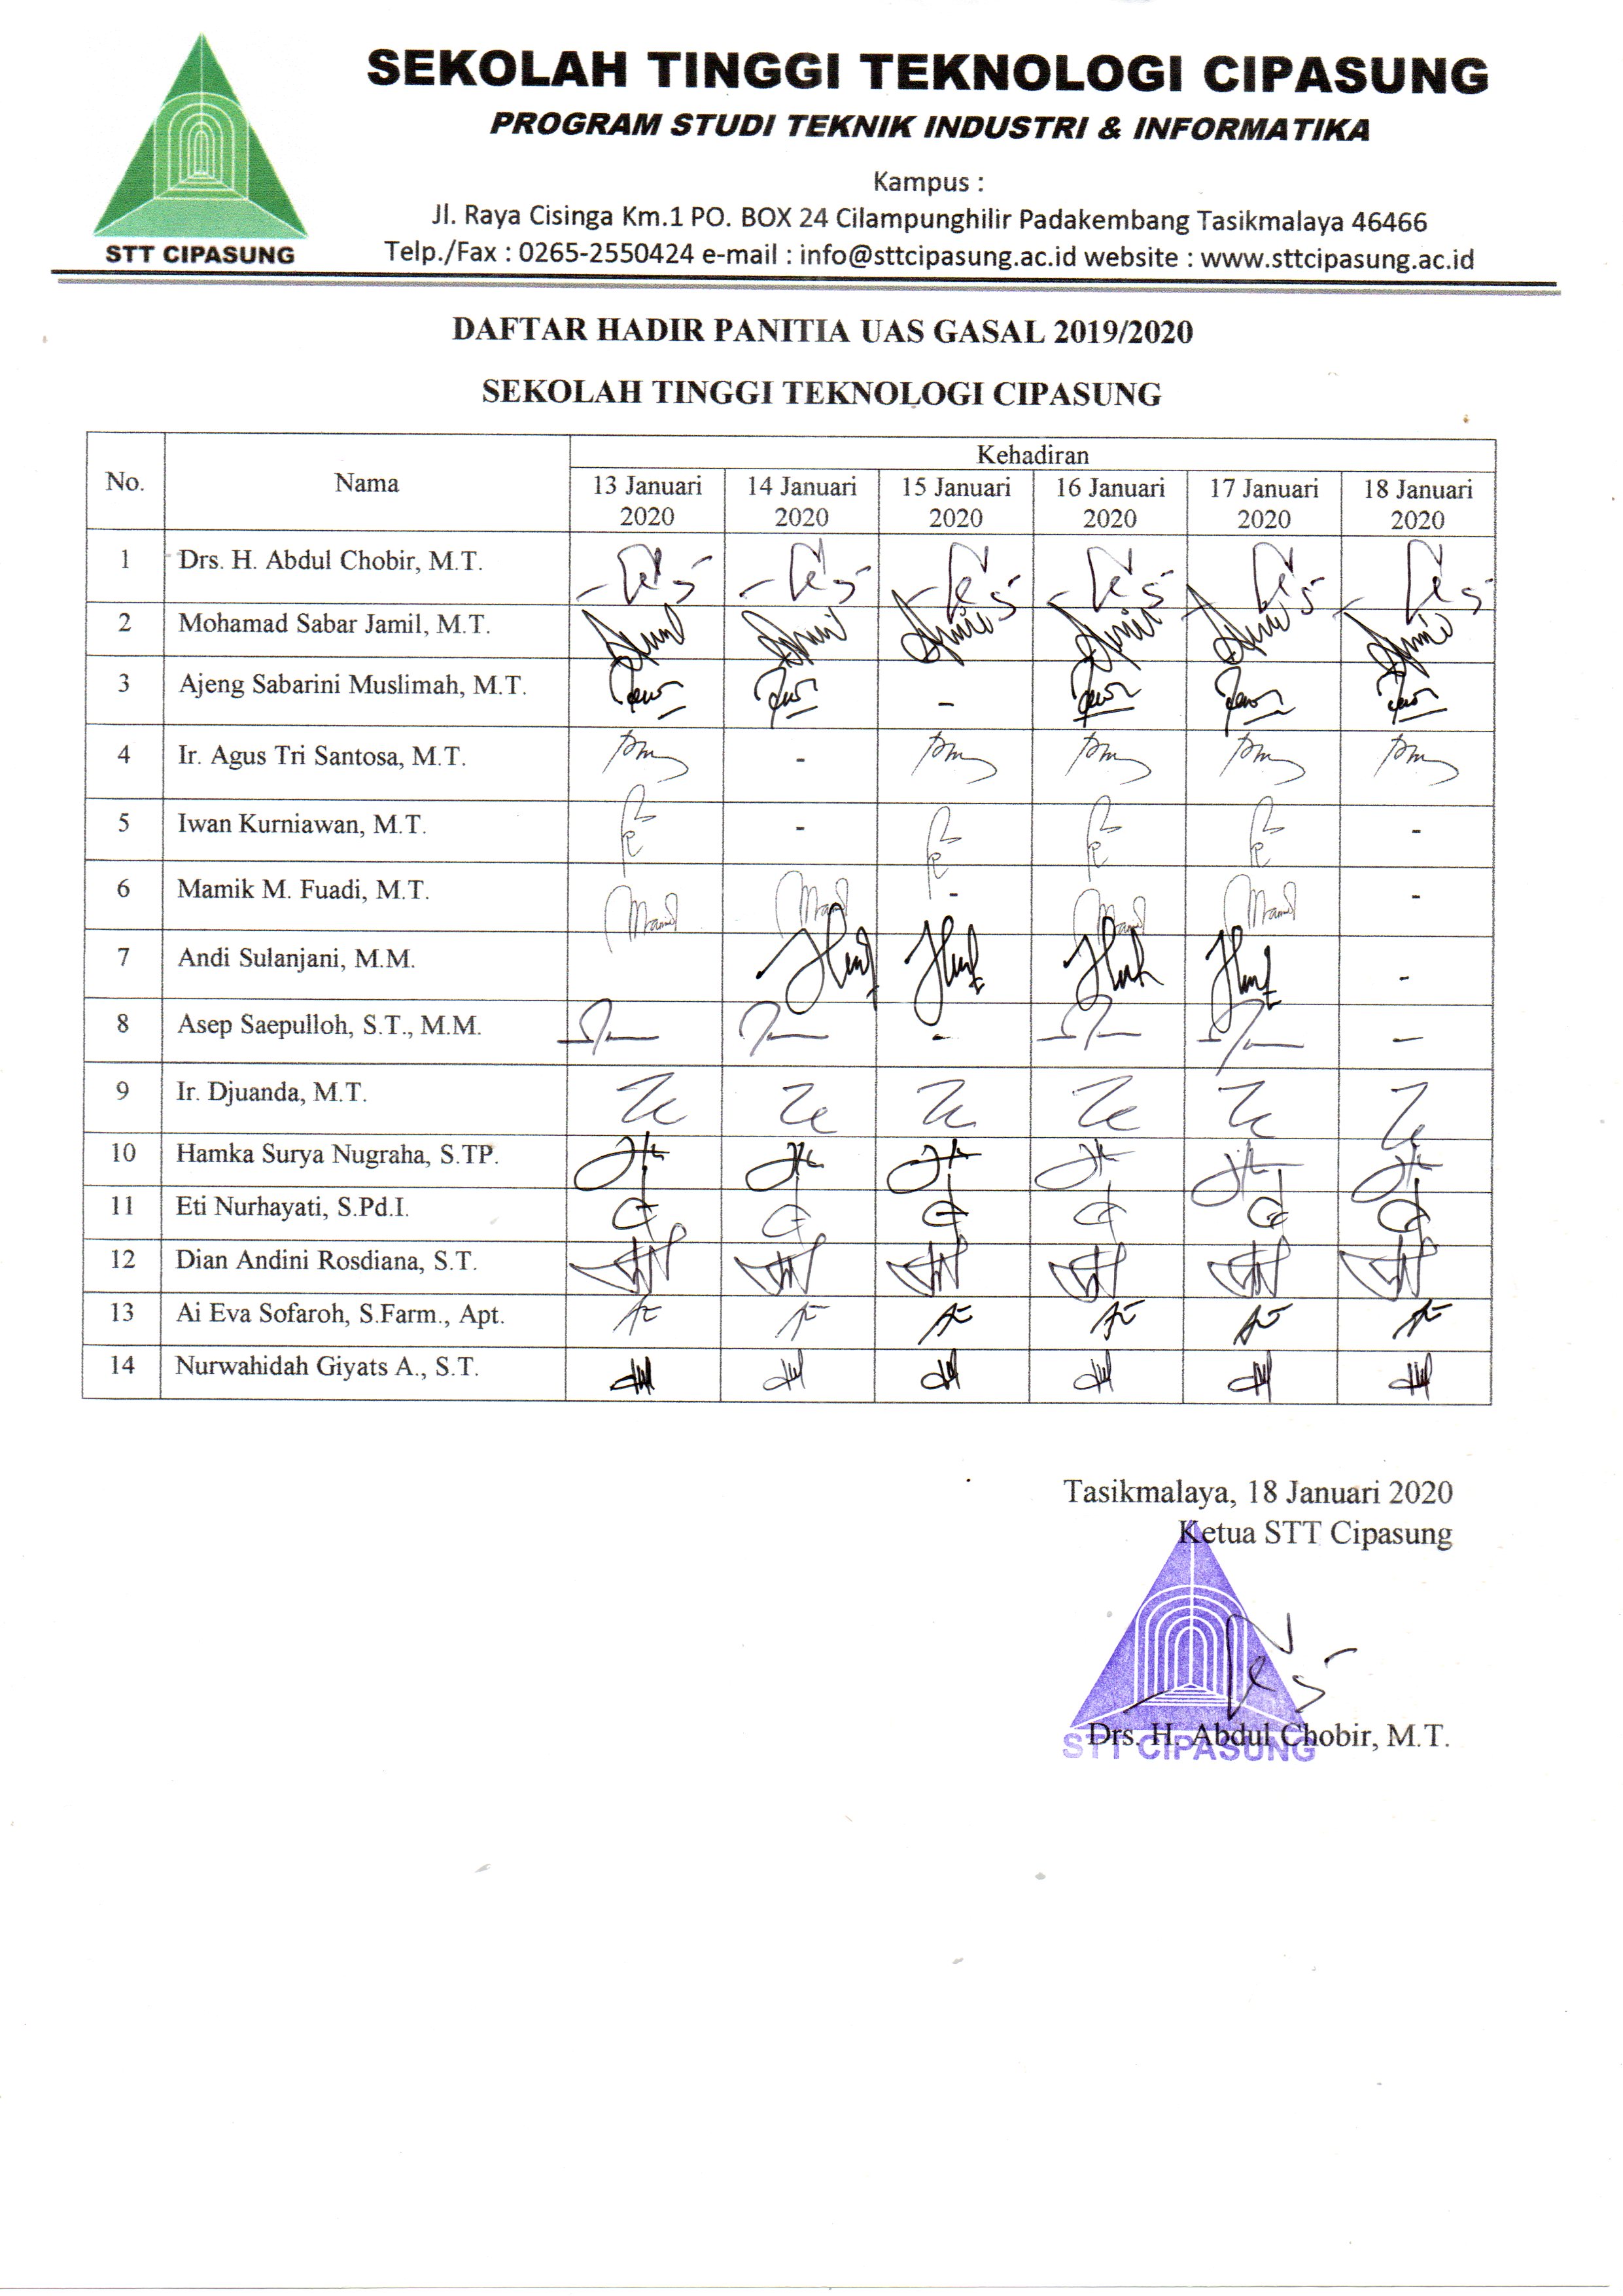 SEKOLAH TINGGI TEKNOLOGI CIPASUNG
PROGRAM STUDI TEKNIK INDUSTRI & INFORMATIKA
Kampus :
Jl. Raya Cisinga Km.1 PO. BOX 24 Cilampunghilir Padakembang Tasikmalaya 46466
STT CIPASUNG
Telp./Fax : 0265-2550424 e-mail : info@sttcipasung.ac.id website : www.sttcipasung.ac.id
DAFTAR HADIR PANITIA UAS GASAL 2019/2020
SEKOLAH TINGGI TEKNOLOGI CIPASUNG
No. Nama Kehadiran
13 Januari 2020 14 Januari 2020 15 Januari 2020 16 Januari 2020 17 Januari 2020 18 Januari 2020
1 Drs. H. Abdul Chobir, M.T.
2 Mohamad Sabar Jamil, M.T.
3 Ajeng Sabarini Muslimah, M.T. -
4 Ir. Agus Tri Santosa, M.T. -
5 Iwan Kurniawan, M.T. - -
6 Mamik M. Fuadi, M.T. - -
7 Andi Sulanjani, M.M. -
8 Asep Saepulloh, S.T., M.M. - -
9 Ir. Djuanda, M.T.
10 Hamka Surya Nugraha, S.TP.
11 Eti Nurhayati, S.Pd.I.
12 Dian Andini Rosdiana, S.T.
13 Ai Eva Sofaroh, S.Farm., Apt.
14 Nurwahidah Giyats A., S.T.
Tasikmalaya, 18 Januari 2020
Ketua STT Cipasung
Drs. H. Abdul Chobir, M.T.
STT CIPASUNG